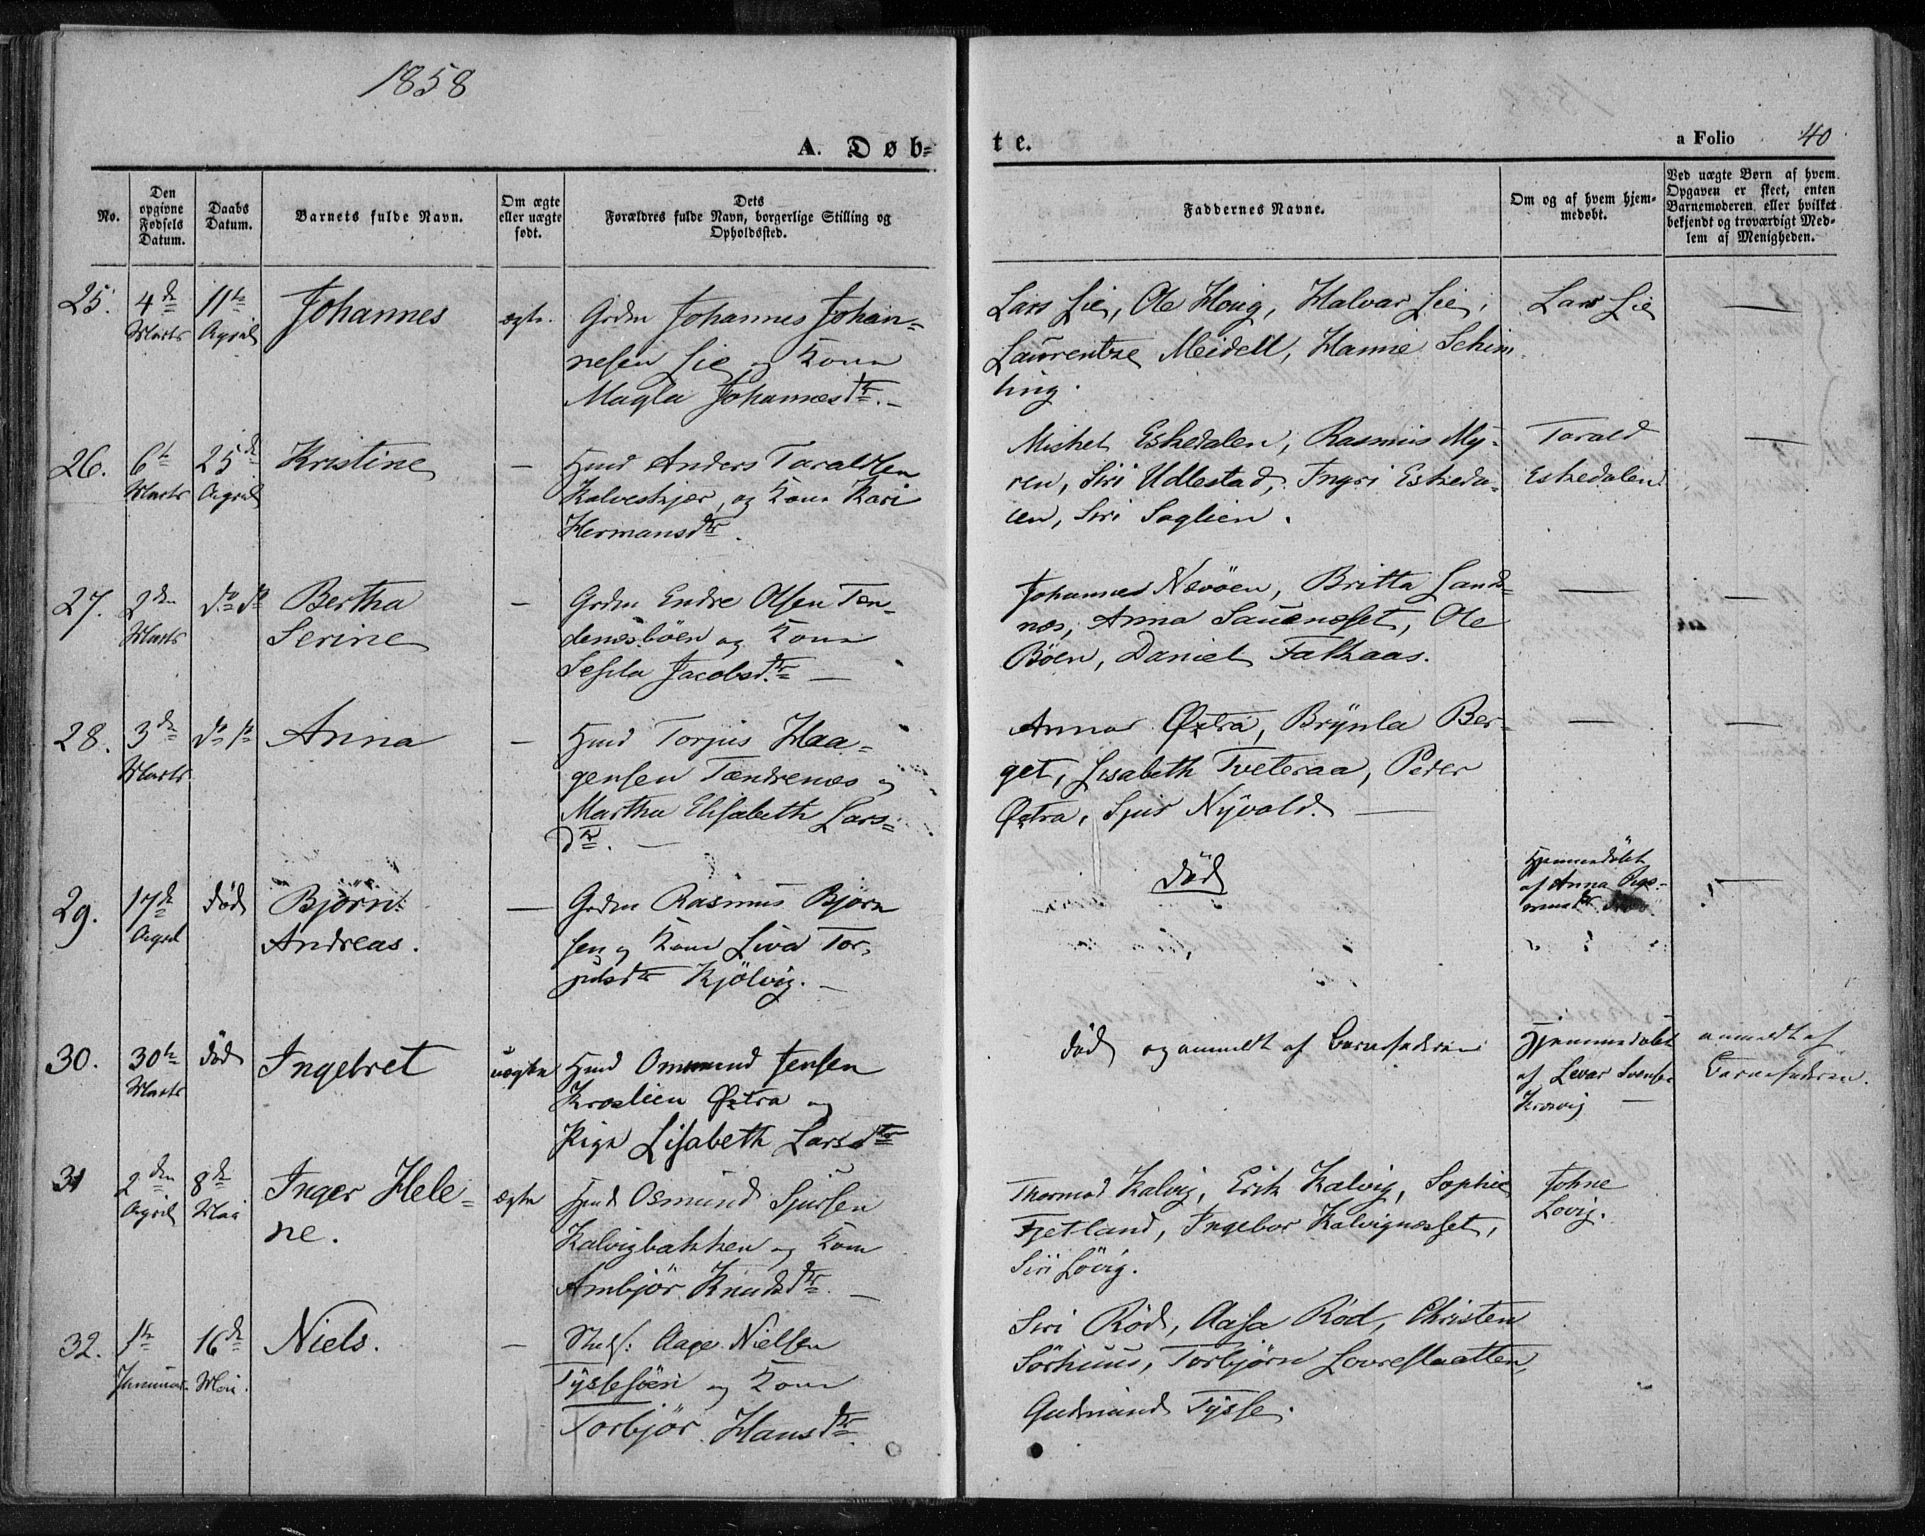 1858
A. Døb=
te.
a Folio 40
No.
Den opgivne Fødsels Datum.
Daabs Datum.
Barnets fulde Navn.
Om ægte eller uægte født.
Dets Forældres fulde Navn, borgerlige Stilling og Opholdssted.
Faddernes Navne.
Om og af hvem hjemmedøbt.
Ved uægte Børn af hvem Opgaven er skeet, enten Barnemoderen eller hvilket bekjendt og troværdigt Medlem af Menigheden.
25. 4de Marts 11te April Johannes ægte.
Grdm Johannes Johan=
nesen Lie og Kone
Magla Johannesdtr. —
Lars Lie, Ole Houg, Halvar Lie,
Laurentze Meidell, Hanne Schim
ling.
Lars Lie
—
26. 6te Marts 25de April Kristine —
Hmd Anders Taraldsen
Kalveskjær, og Kone Kari
Hermansdtr.
Michel Eskedalen, Rasmus My=
ren, Siri Udlestad, Ingri Eskeda=
len, Siri Soglien.
Tarald
Eskedalen
—
27. 2den Marts do do Bertha
Serine —
Grdm Endre Olsen Tøn=
denesbøen og Kone
Sesela Jacobsdtr. —
Johannes Nevøen, Britta Sands=
næs, Anna Sauenesset, Ole
Bøen, Daniel Falkaas.
—
—
28. 3de Marts do do Anna —
Hmd Torjus Haa=
gensen Tændrenes og
Martha Elisabeth Lars=
dtr. —
Anna Østra, Brynla Ber=
get, Lisabeth Tveteraa, Peder
Østra, Sjur Nyvold. —
—
—
29. 17de April død Bjørn
Andreas. —
Grdm Rasmus Bjørn
sen og Kone Liva Tor=
julsdtr Kjølvig. —
død
Hjemmedøbt
af Anna
—
30. 30te Marts død Ingebret uægte
Hmd Ommund Jensen
Kroslien Østra og
Pige Lisabeth Larsdtr
død og anmeldt af Barnefaderen
Hjemmedøbt
af Levar Svensen
Krovig —
anmeldt af
Barnefaderen.
31 2den April 8de Mai Inger Hele=
ne. ægte
Hmd Osmund Sjursen
Kalvigbakken og Kone
Ambjør Knudsdtr. —
Thormod Kalvig, Erik Kalvig, Sophie
Fjetland, Ingebor Kalvignesset,
Siri Løvig.
Johne
Lovig.
32. 1te Januar 16de Mai. Niels. —
Aage Nielsen
Tyssesøen og Kone
Torbjør Hansdtr.
Siri Rød, Aasa Rød, Christen
Sørhuus, Torbjørn Lovreslaatten,
Gudmund Tysse.